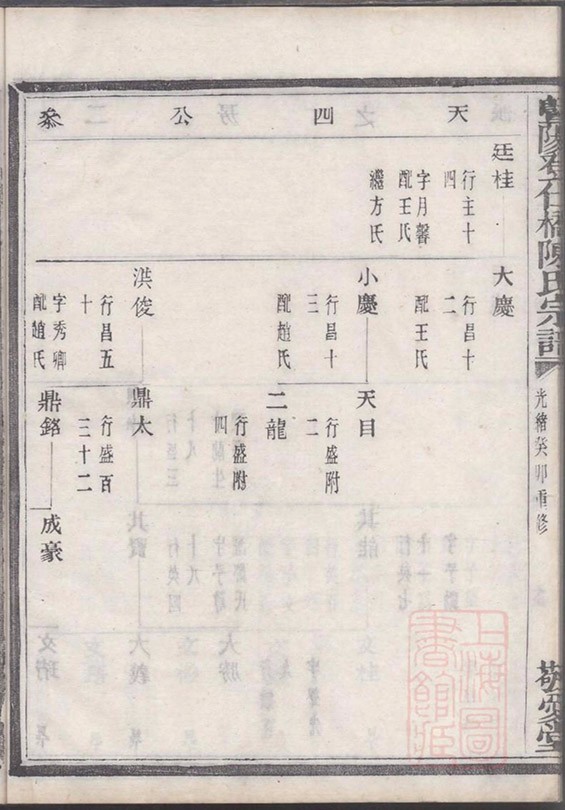 暨陽登仕橋陳氏宗譜
光緒癸卯重修
敬愛堂
天四公叅
廷桂
行主十
四
字月馨
配王氏
繼方氏
大慶
行昌十
二
配王氏
小慶
行昌十
三
配趙氏
洪俊
行昌五
十
字秀卿
配趙氏
天目
行盛附
二
二龍
行盛附
四
鼎太
行盛百
三十二
鼎銘
成豪
上海圖
書館藏